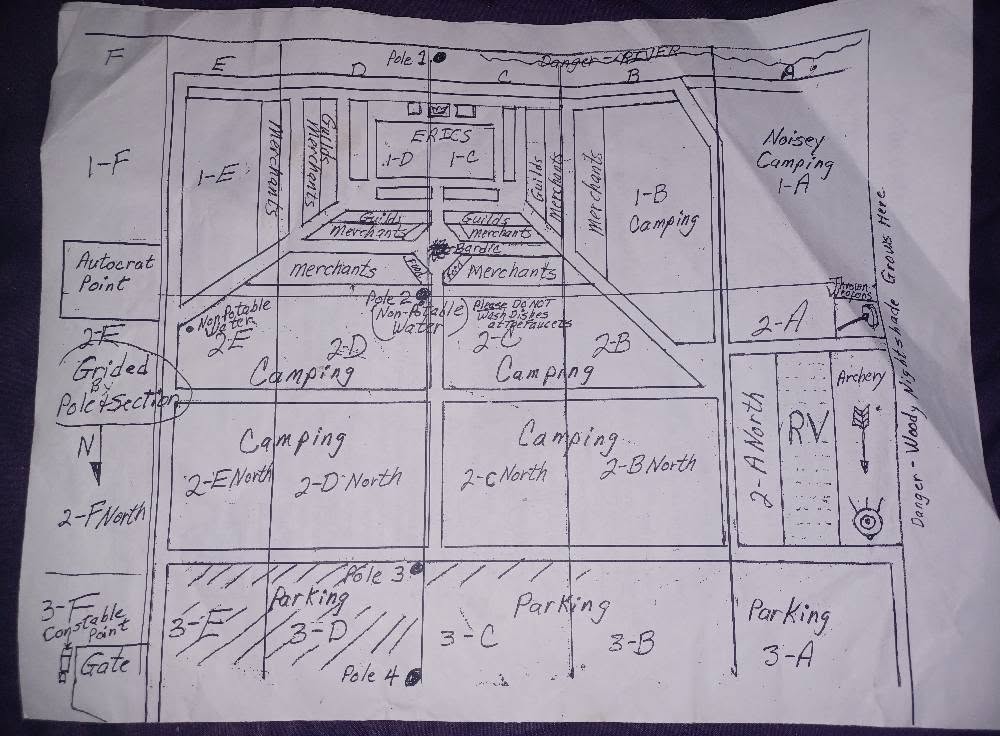 F
E
D
Pole 1
C
Danger - RIVER
B
A
1-F
1-E
Merchants
Guilds
Merchants
ERICS
1-D
1-C
Guilds
Merchants
Merchants
1-B
Camping
Noisey
Camping
1-A
Guilds
Merchants
Guilds
Merchants
Bardic
Merchants
Food
Food
Merchants
Autocrat
Point
Danger - Woody Nightshade Grows Here
Non-Potable
Water
2-E
2-D
Camping
Pole 2
Non-Potable
Water
Please DO NOT
Wash Dishes
at The Faucets
2-C
2-B
Camping
2-A
Thrown
Weapons
2-F
Grided
By
Pole & Section
N
2-F North
Camping
2-E North
2-D North
Camping
2-C North
2-B North
2-A North
RV
Archery
3-F
Constable
Point
Gate
Pole 3
Parking
3-E
3-D
Pole 4
Parking
3-C
3-B
Parking
3-A